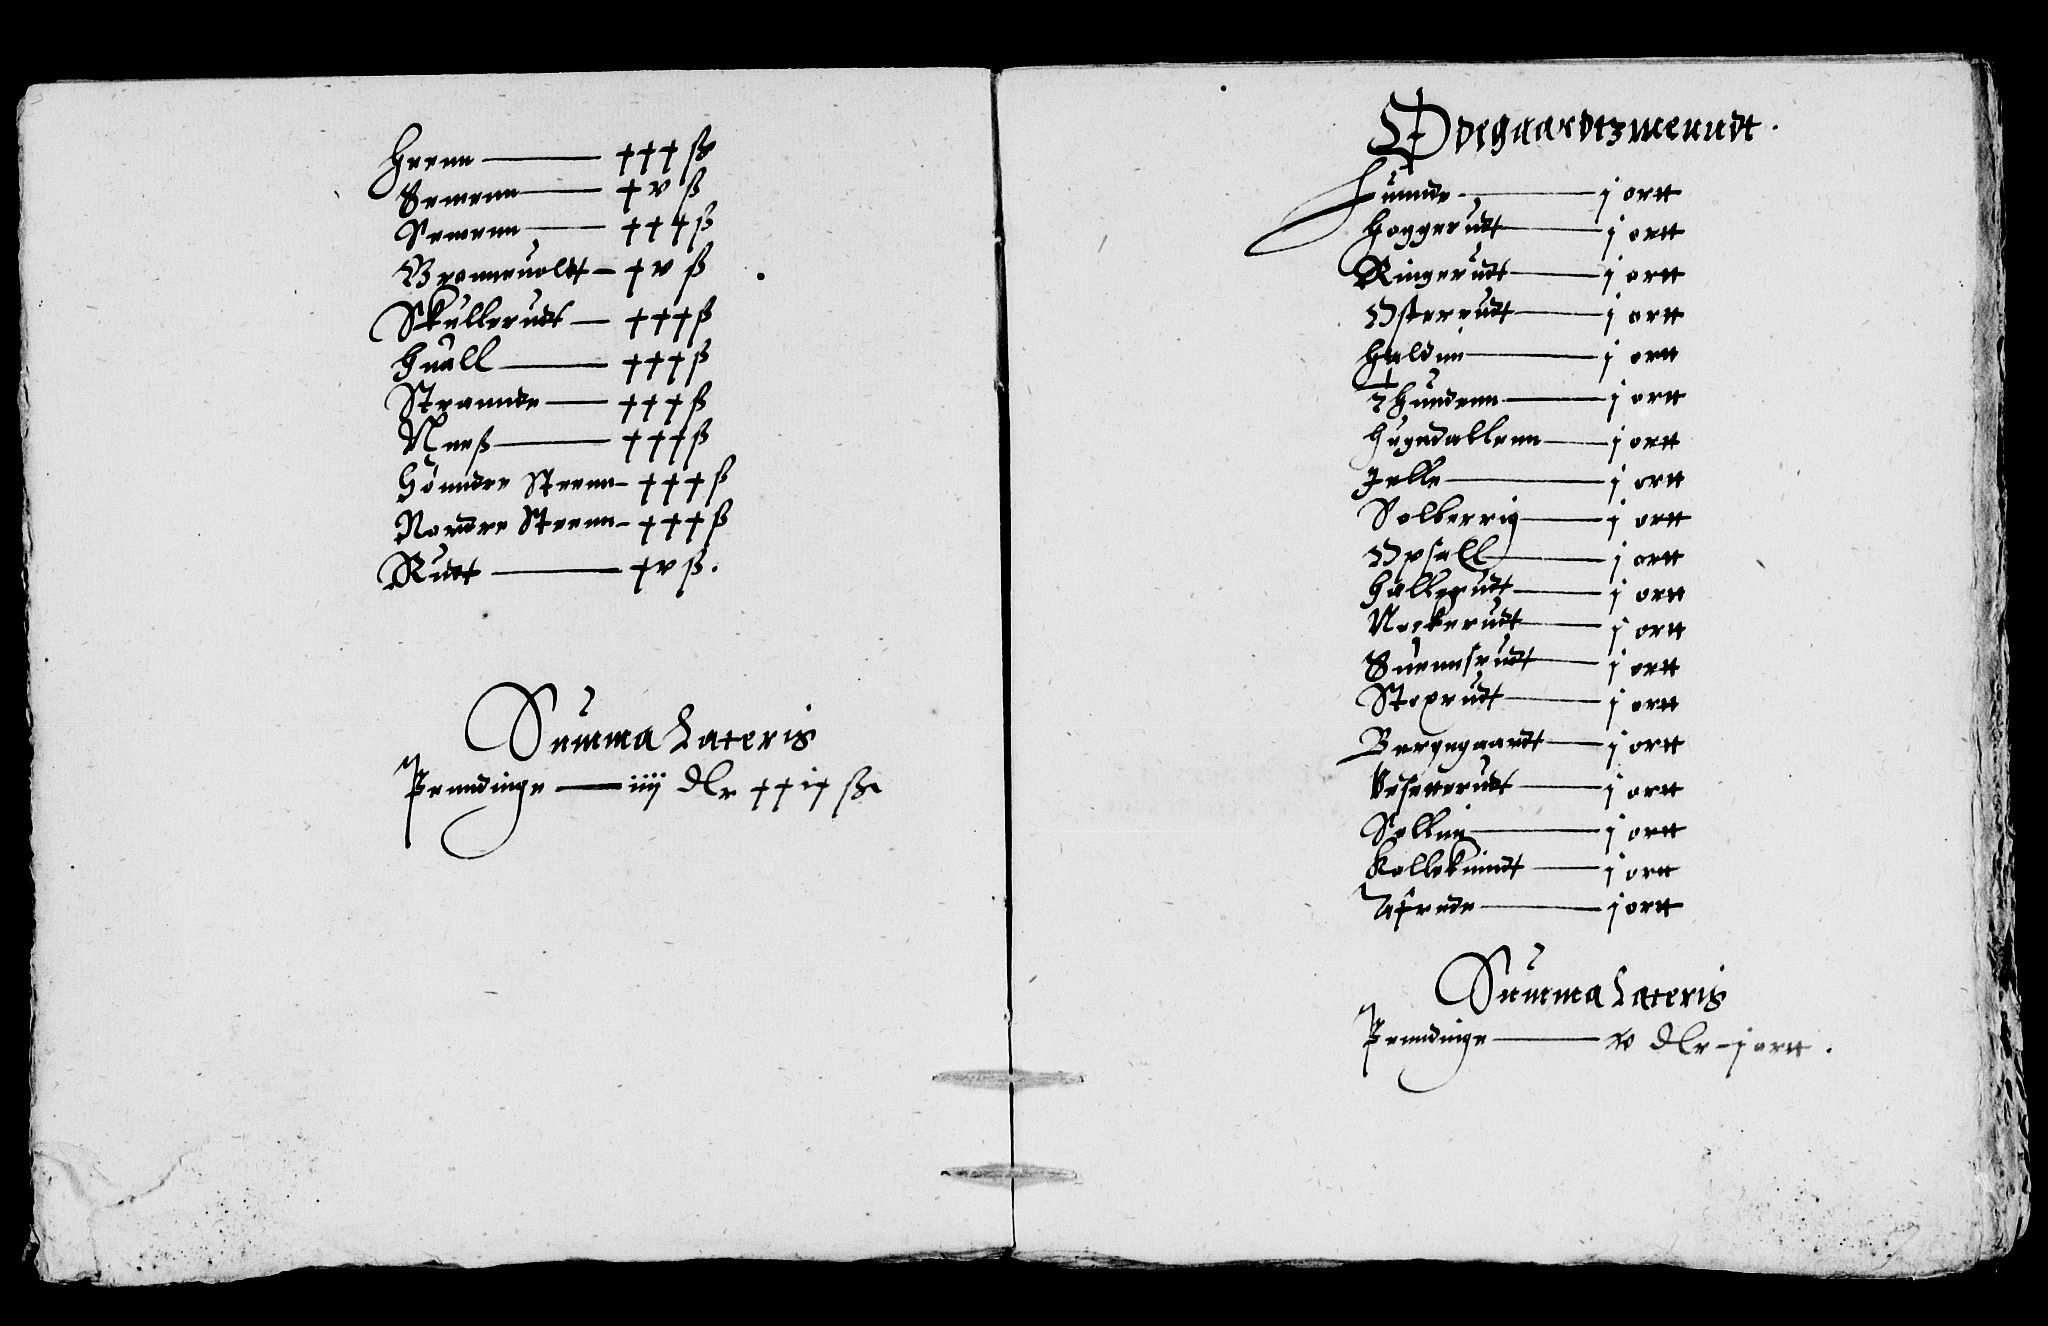 Heenn — xxx ß
Semenn — xv ß
Semenn — xxx ß
Bronneuoldt — xv ß
Skullerudt — xxx ß
Huall — xxx ß
Strannde — xxx ß
Neeß — xxx ß
Sönndre Steenn — xxx ß
Nordre Steenn — xxx ß
Rudt — xv ß.
Summa Lateris
Penndinge — iiij dlr xxix ß
Ödegaardtzmenndt.
Lunnde — j ortt
Hoggerudt — j ortt
Ringerudt — j ortt
Østerudt — j ortt
Haldinn — j ortt
Thundenn — j ortt
Hugndallenn — j ortt
Jelle — j ortt
Solberrig — j ortt
Opsall — j ortt
Hallerudt — j ortt
Nockerudt — j ortt
Suennsrudt — j ortt
Stoprudt — j ortt
Bergegaardt — j ortt
Kesetterudt — j ortt
Sollin — j ortt
Kollekinndt — j ortt
j ortt
Summa Lateris
Penndinge — iv dlr - j ortt.